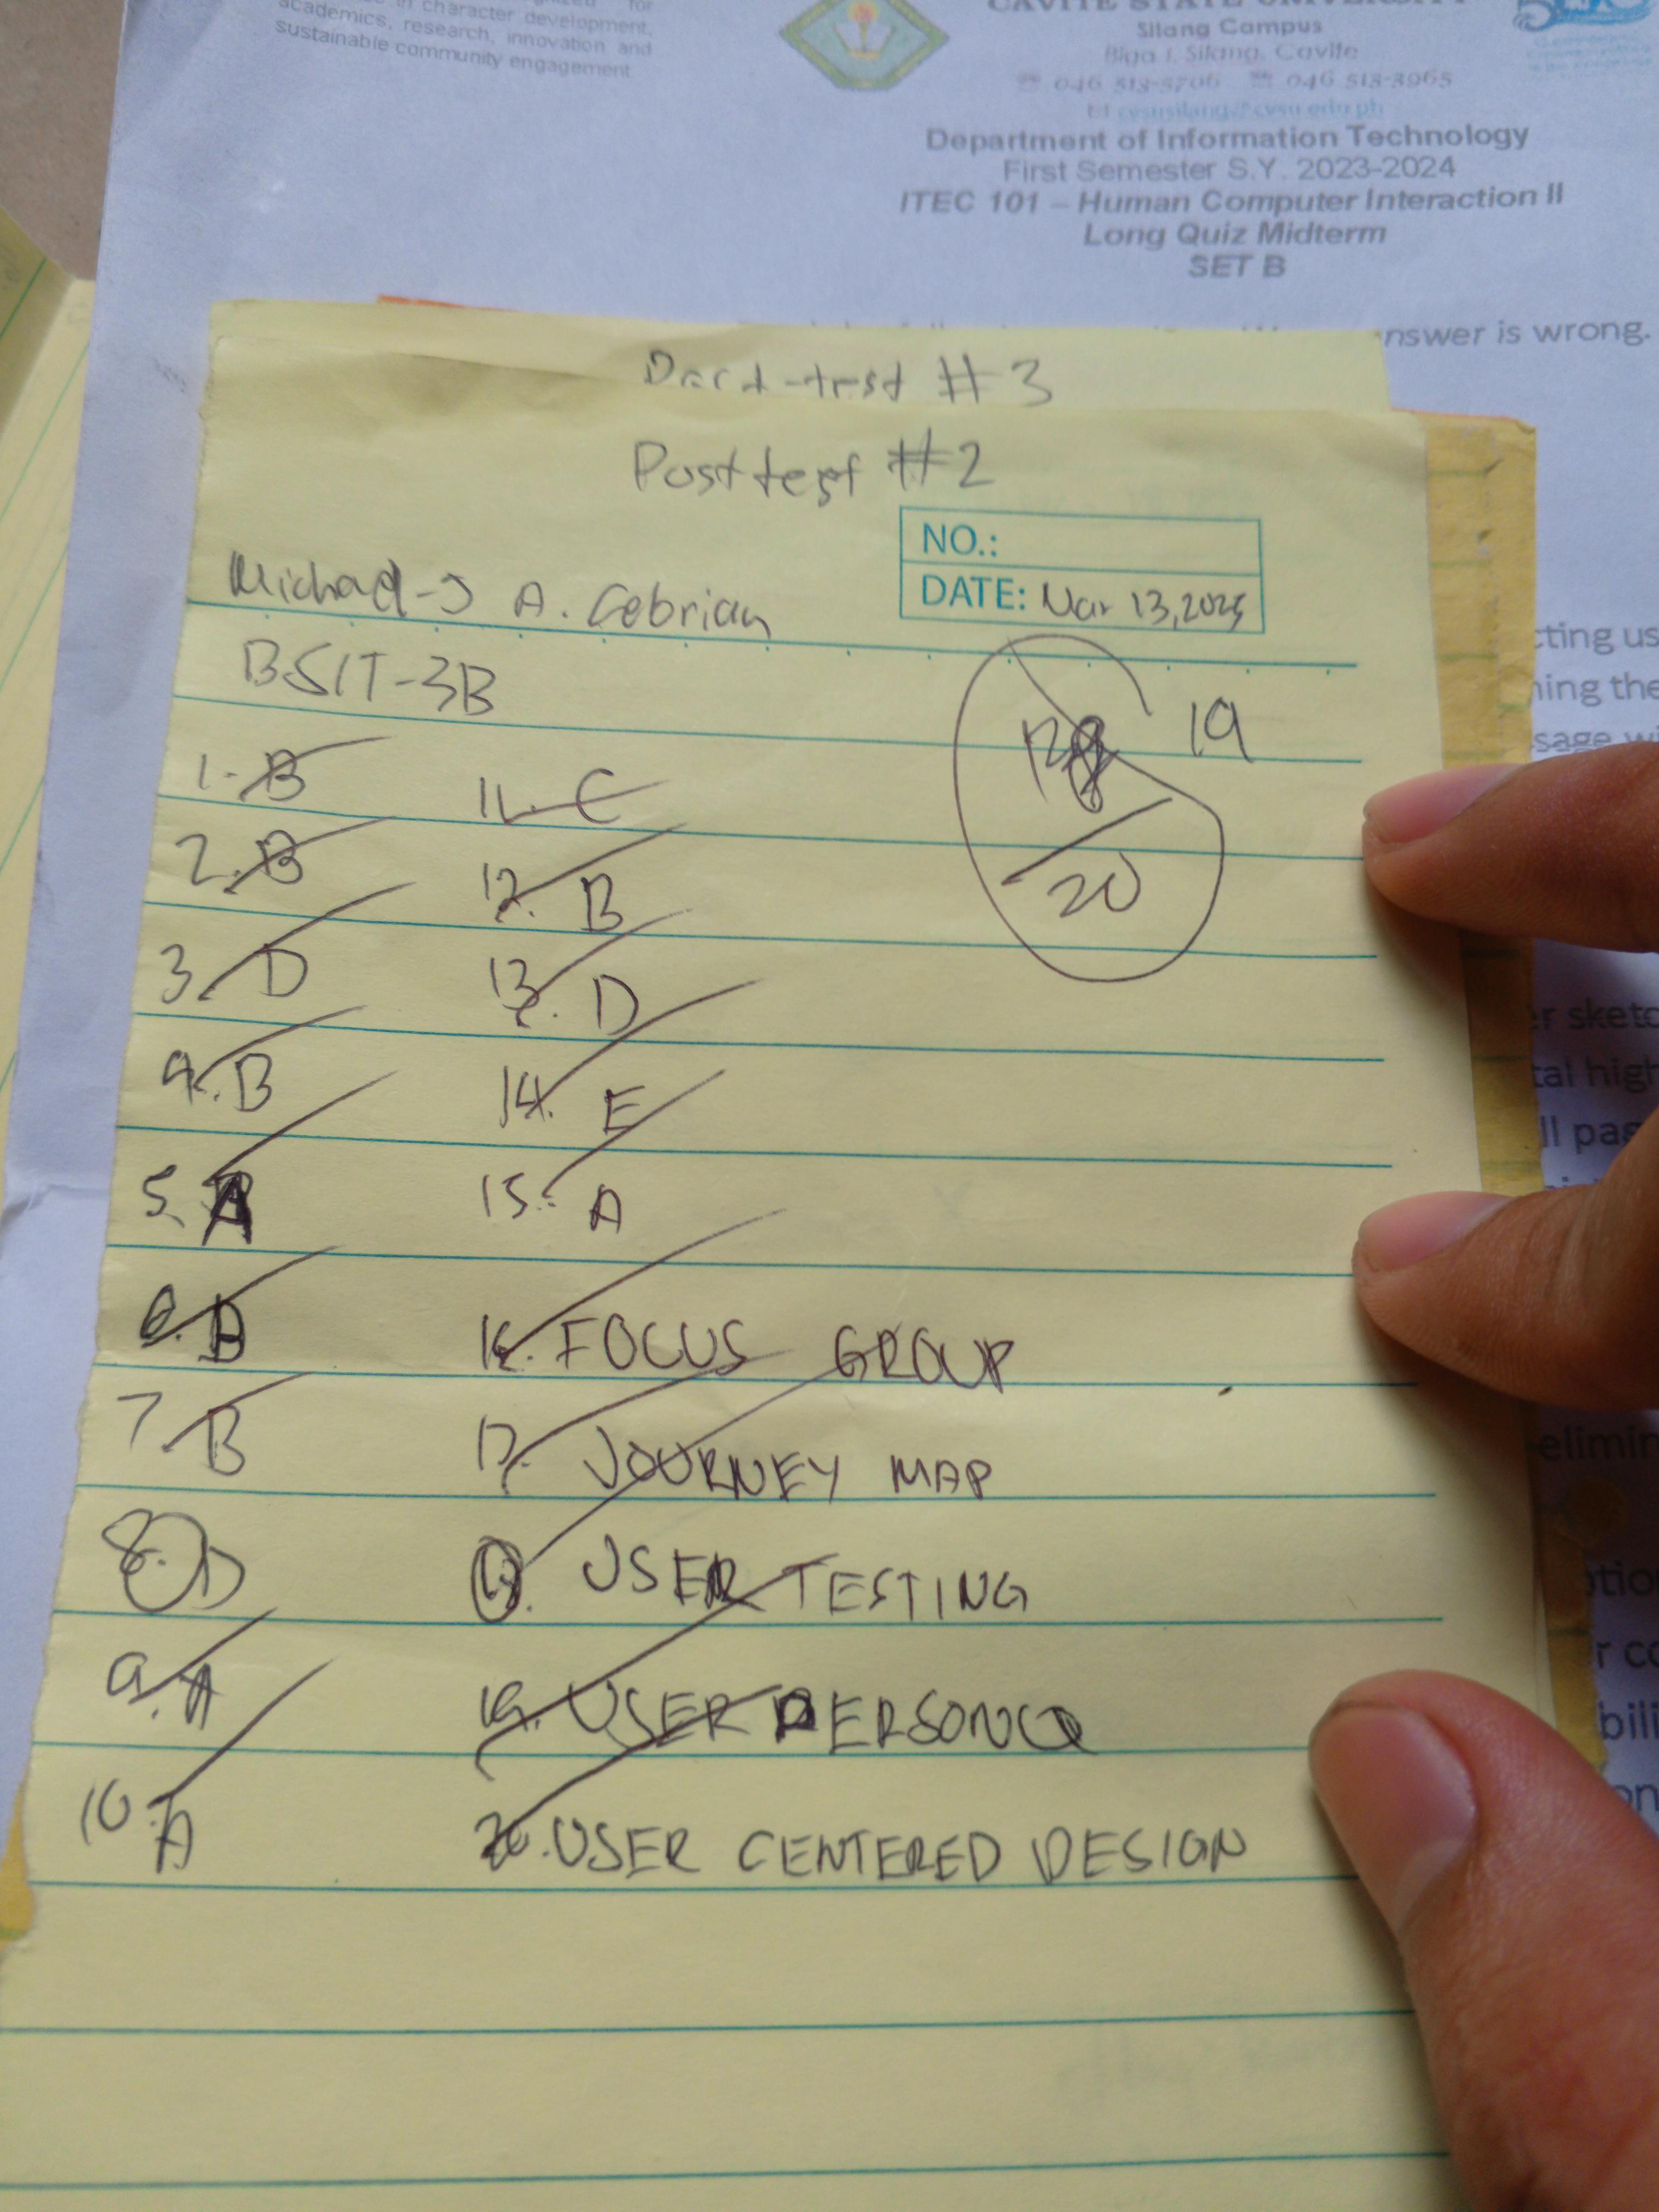 in character development,
academics, research, innovation and
sustainable community engagement.
CAVITE STATE UNIVERSITY
Silang Campus
Biga I, Silang, Cavite
046 513-5706 046 513-3965
cvsusilang@cvsu.edu.ph
Department of Information Technology
First Semester S.Y. 2023-2024
ITEC 101 – Human Computer Interaction II
Long Quiz Midterm
SET B
nswer is wrong.
#3
Posttest #2
NO.:
DATE: Mar 13, 2025
Michael-J A. Cebrian
BSIT-3B
19
20
1. B
2. B
3. D
4. B
5. A
6. B
7. B
8. D
9. A
10. A
11. C
12. B
13. D
14. E
15. A
16. FOCUS GROUP
17. JOURNEY MAP
USER TESTING
19. USER PERSONA
20. USER CENTERED DESIGN